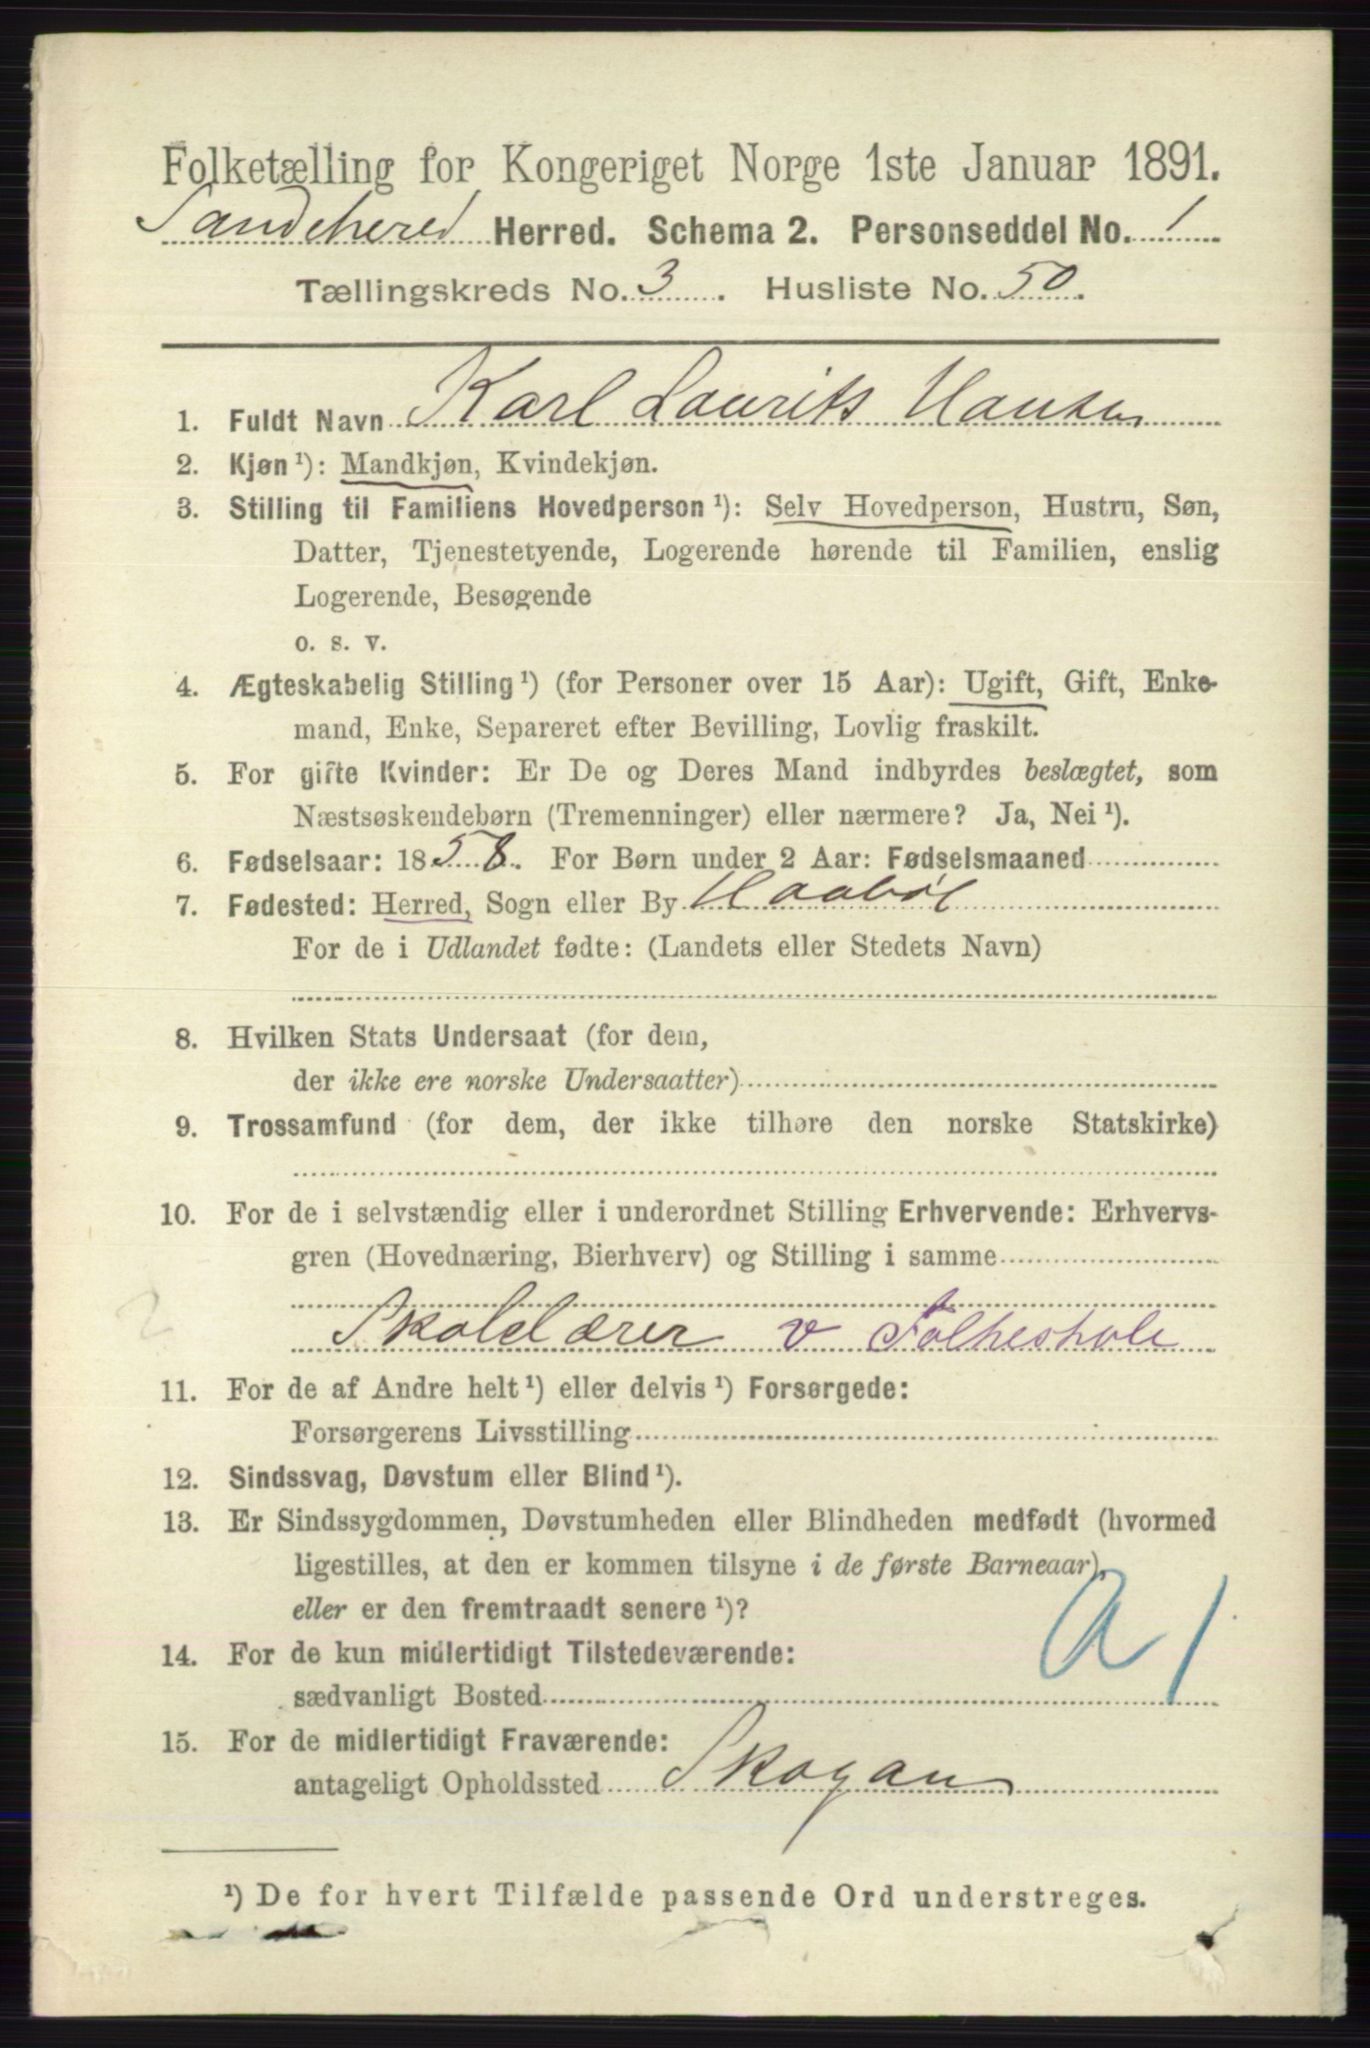 Folketælling for Kongeriget Norge 1ste Januar 1891.
Sandehered Herred. Schema 2. Personseddel No. 1
Tællingskreds No. 3. Husliste No. 50.
1. Fuldt Navn Karl Laurits Hansen
2. Kjøn ¹): Mandkjøn, Kvindekjøn.
3. Stilling til Familiens Hovedperson ¹): Selv Hovedperson, Hustru, Søn,
Datter, Tjenestetyende, Logerende hørende til Familien, enslig
Logerende, Besøgende
o. s. v.
4. Ægteskabelig Stilling ¹) (for Personer over 15 Aar): Ugift, Gift, Enke-
mand, Enke, Separeret efter Bevilling, Lovlig fraskilt.
5. For gifte Kvinder: Er De og Deres Mand indbyrdes beslægtet, som
Næstsøskendebørn (Tremenninger) eller nærmere? Ja, Nei ¹).
6. Fødselsaar: 1858. For Børn under 2 Aar: Fødselsmaaned
7. Fødested: Herred, Sogn eller By Haabøl
For de i Udlandet fødte: (Landets eller Stedets Navn)
8. Hvilken Stats Undersaat (for dem,
der ikke ere norske Undersaatter)
9. Trossamfund (for dem, der ikke tilhøre den norske Statskirke)
10. For de i selvstændig eller i underordnet Stilling Erhvervende: Erhvervs-
gren (Hovednæring, Bierhverv) og Stilling i samme
Skolelærer v Folkeskole
11. For de af Andre helt ¹) eller delvis ¹) Forsørgede:
Forsørgerens Livsstilling
12. Sindssvag, Døvstum eller Blind ¹).
13. Er Sindssygdommen, Døvstumheden eller Blindheden medfødt (hvormed
ligestilles, at den er kommen tilsyne i de første Barneaar),
eller er den fremtraadt senere ¹)?
a 1
14. For de kun midlertidigt Tilstedeværende:
sædvanligt Bosted
15. For de midlertidigt Fraværende:
antageligt Opholdssted Skogan
¹) De for hvert Tilfælde passende Ord understreges.